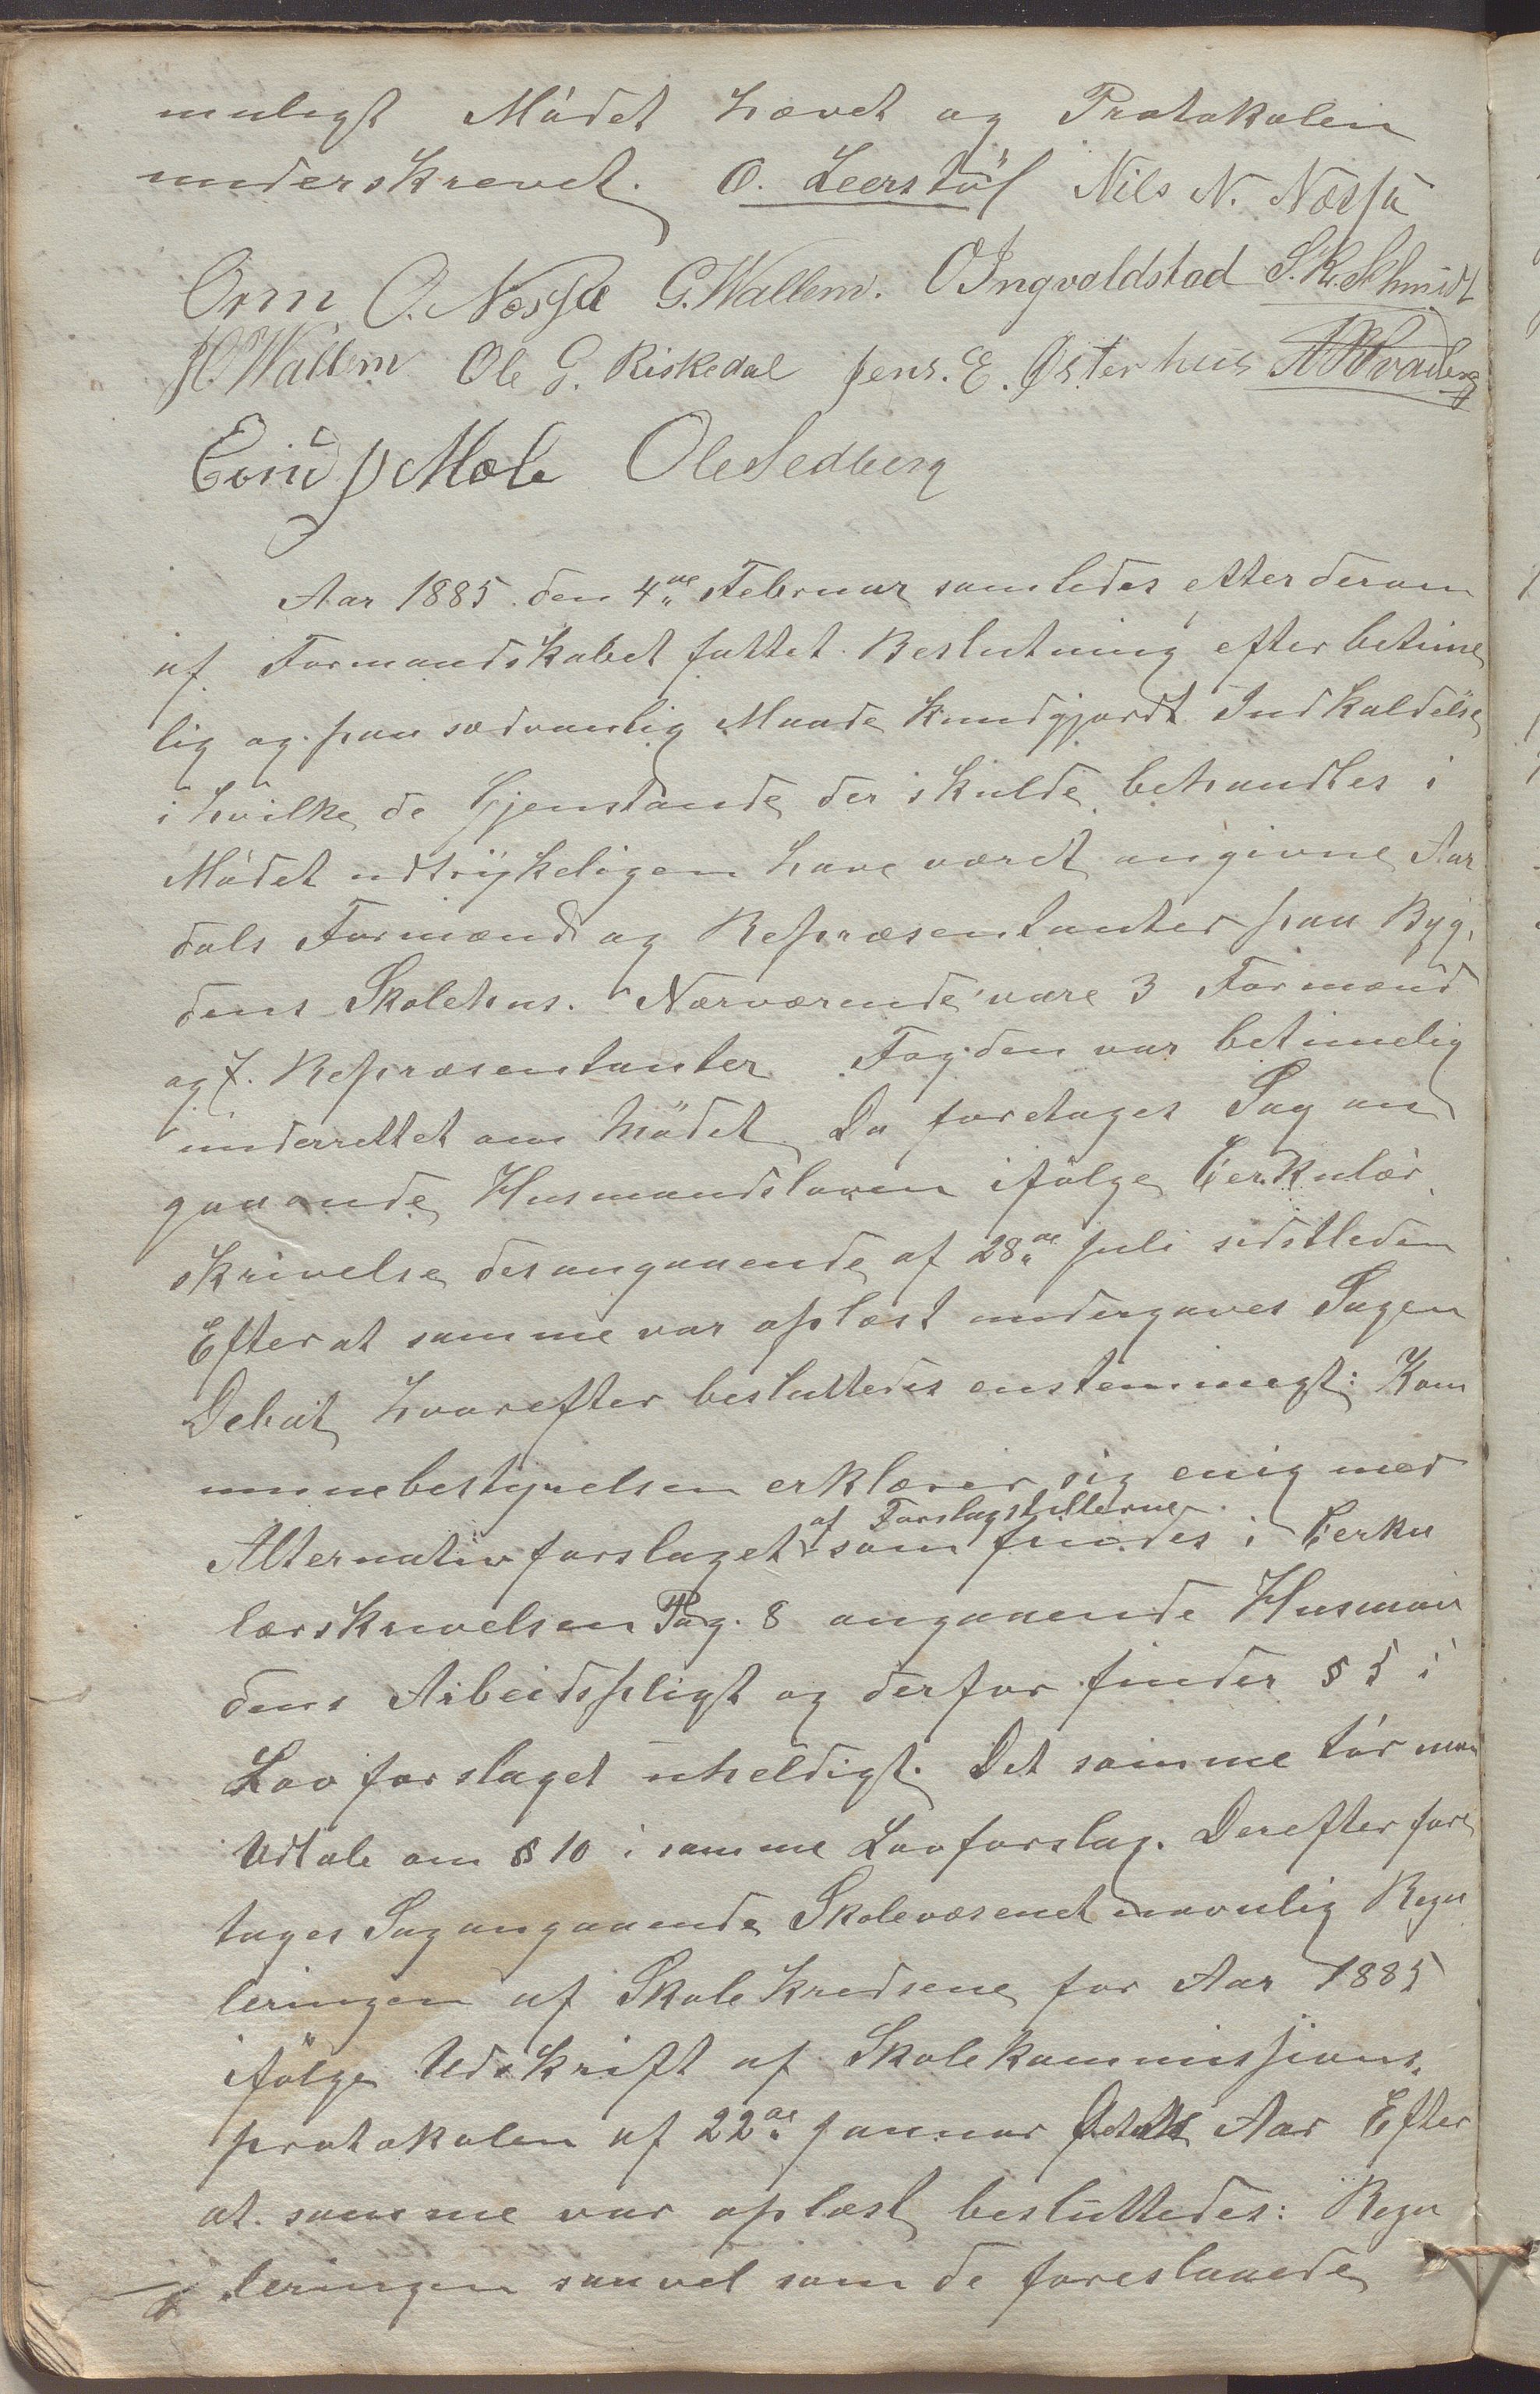 muligt Mödet hævet og Protokolen
underskrevet. O. Leerstöl Nils N. Nessa
Orm O. Nessa G. Wallem. O Ingvaldstad S. K. Schmidt
H. Wallem Ole G. Riskedal Jens. E. Østerhus
Eivind J Mæle Ole Sedberg
Aar 1885 den 4de Februar samledes etter derom
af Formandskabet fattet Beslutning efter betime
lig og paa sædvanlig Maade kundgjordt Indkaldelse
i hvilke de Gjenstande der skulde behandles i
Mödet udtrykeligen have været angivne Aar
dals Formænd og Repræsentanter paa Byg,
dens Skolehus. Nærværende vare 3 Formænd
og 7. Repræsentanter Fogden var betimelig
underrettet om Mödet. Da foretages Sag an
gaaende Husmandsloven ifölge Cerkulær
skrivelse desangaaende af 28de Juli sidstleden
Efter at samme var oplæst undergaves Sagen
Debat hvorefter besluttedes enstemmigt: Kom
munebestyrelsen erklærer sig enig med
af Forslagstillerne
Alternativforslaget som findes i Cerku
lærskrivelsen Pag. 8 angaaende Husman
dens Arbeidspligt og derfor finder § 5 i
Lovforslaget uheldigt. Det samme tör man
Udtale om § 10 i samme Lovforslag. Derefter fore
tages Sag angaaende Skolevæsenet navnlig Regu
leringen af Skolekredsene for Aar 1885
ifölge Udskrift af Skolekommissions,
protokolen af 22de Januar dette Aar Efter
at samme var oplæst besluttedes: Regu
leringen saavel som de foreslaaede